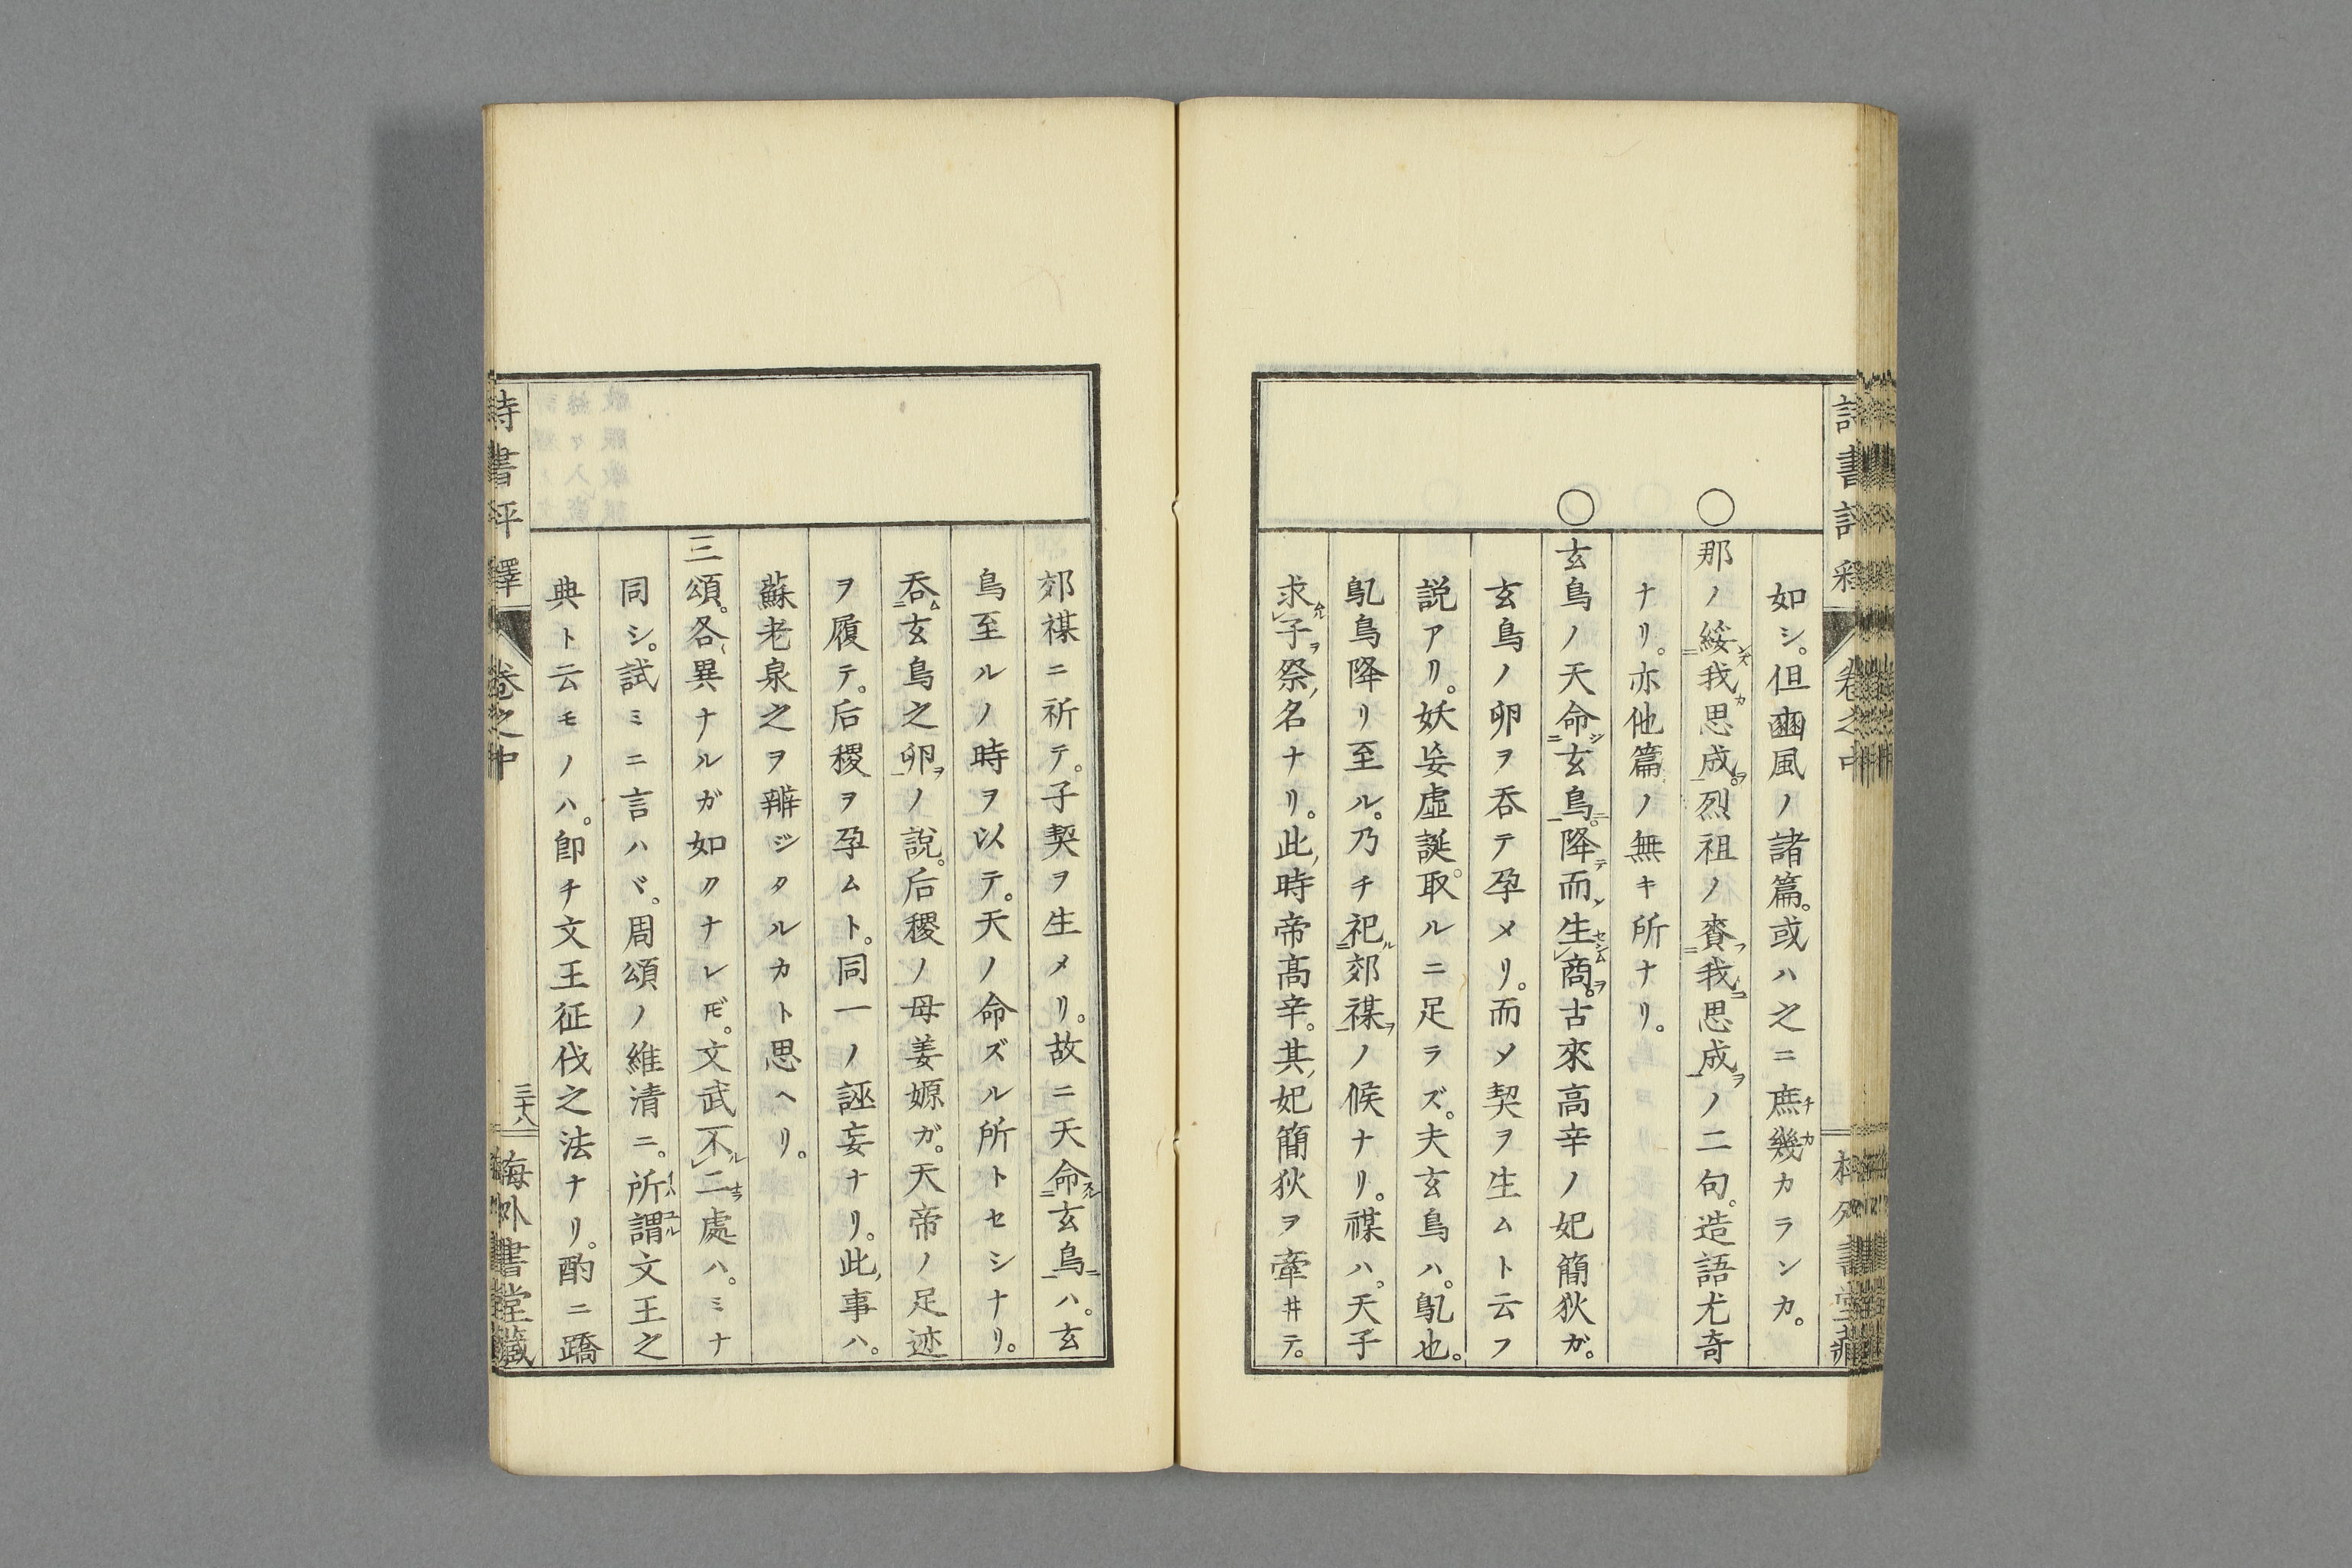 如シ。但豳風ノ諸篇。或ハ之ニ庶チ幾カカランカ。
○那ノ綏我思成。烈祖ノ賚我思成ノ二句。造語尤奇
ナリ。亦他篇ノ無キ所ナリ。
○玄鳥ノ天命玄鳥。降而生商。古來高辛ノ妃簡狄ガ。
玄鳥ノ卵ヲ吞テ孕メリ。而メ契ヲ生ムト云フ
説アリ。妖妄虛誕。取ルニ足ラズ。夫玄鳥ハ。鳦也。
鳦鳥降リ至ル。乃チ祀郊禖ノ候ナリ。禖ハ。天子
求子祭ノ名ナリ。此ノ時帝髙辛。其ノ妃簡狄ヲ牽井テ。
郊禖ニ祈テ。子契ヲ生メリ。故ニ天命玄鳥ハ。玄
鳥至ルノ時ヲ以テ。天ノ命ズル所トセシナリ。
吞玄鳥之卵ノ說。后稷ノ母姜嫄ガ。天帝ノ足迹
ヲ履テ。后稷ヲ孕ムト。同一ノ誣妄ナリ。此ノ事ハ。
蘇老泉之ヲ辨ジタルカト思ヘリ。
三頌。各異ナルガ如クナレ𪜈。文武不二處ハ。ミナ
同シ。試ミニ言ハヾ。周頌ノ維清ニ。所謂文王之
典ト云モノハ。卽チ文王征伐之法ナリ。酌ニ蹻
詩書評釋
卷之中
三十八
海外書堂藏